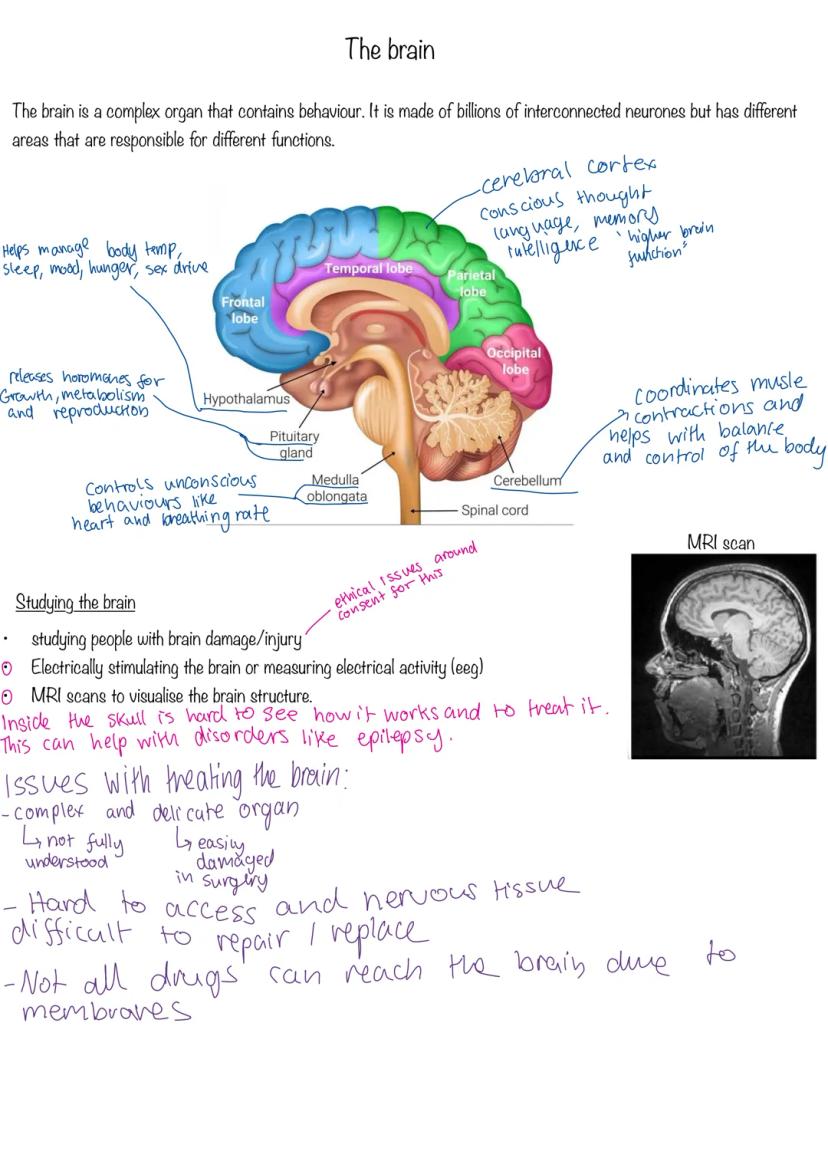 The brain
The brain is a complex organ that contains behaviour. It is made of billions of interconnected neurones but has different
areas that are responsible for different functions.
cerebral cortex
conscious thought
language, memory
intelligence
"higher brain
function"
Helps manage body temp,
sleep, mood, hunger, sex drive
Temporal lobe
Parietal
lobe
Frontal
lobe
Occipital
lobe
releases horomones for
Growth, metabolism
and reproduction
Hypothalamus
Pituitary
gland
coordinates musle
contractions and
helps with balance
and control of the body
Controls unconscious
behaviours like
heart and breathing rate
Medulla
oblongata
Cerebellum
Spinal cord
MRI scan
ethical issues around
consent for this
Studying the brain
• studying people with brain damage/injury
Electrically stimulating the brain or measuring electrical activity (eeg)
MRI scans to visualise the brain structure.
Inside the skull is hard to see how it works and to treat it.
This can help with disorders like epilepsy.
Issues with treating the brain:
- complex and delicate organ
↳ not fully
understood
↳ easily
damaged
in surgery
- Hard to access and nervous tissue
difficult to repair / replace
- Not all drugs can reach the brain due to
membranes